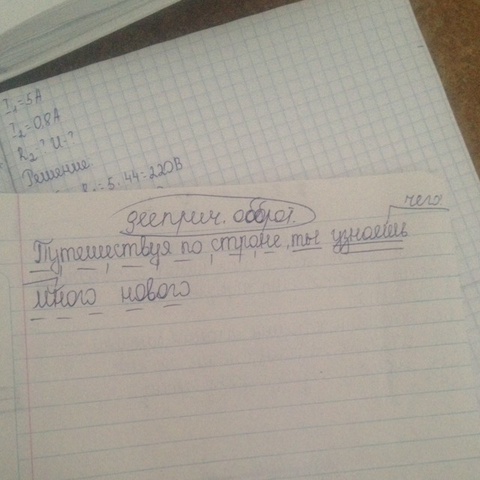 I₁=5А
I₂=0.8А
R₂? U-?
Решение
5·44=220В
дееприч. оборот.
чего
Путешествуя по стране, ты узнаешь
много нового